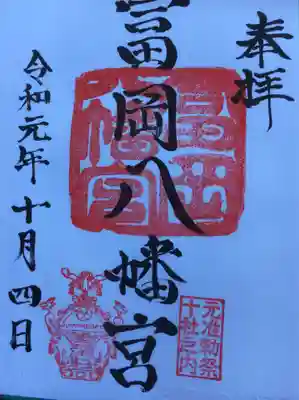 奉拝
富岡八幡宮
富岡八幡宮
元准勅祭
十社之内
令和元年十月四日